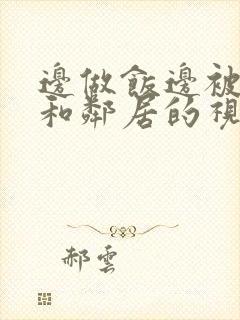 邊做飯邊被
和鄰居的視
郝雲